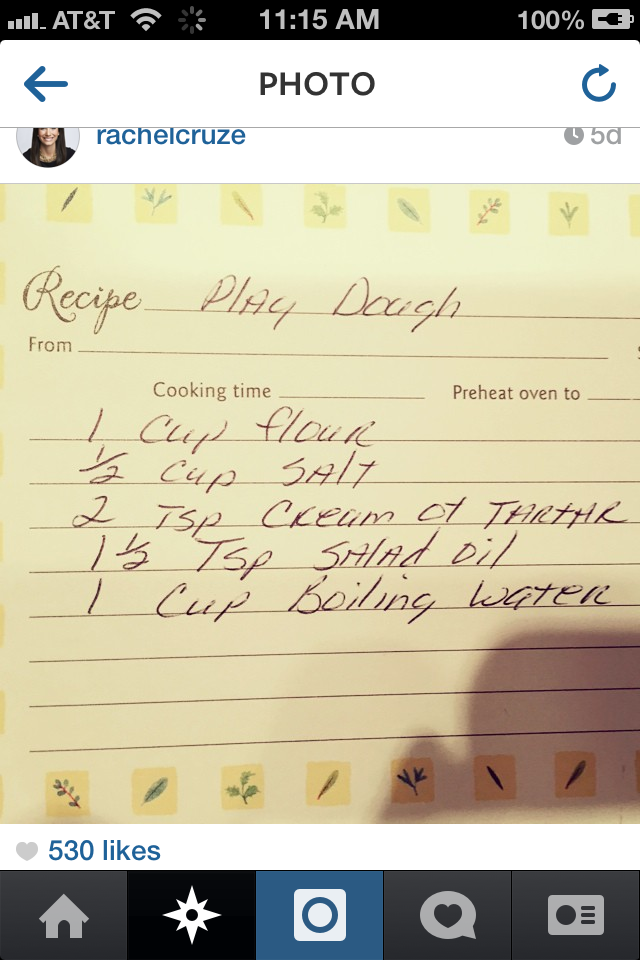 AT&T 11:15 AM 100%
PHOTO
rachelcruze 5d
Recipe Play Dough
From
Cooking time Preheat oven to
1 Cup flour
1/2 Cup SALT
2 Tsp Cream of TARTAR
1 1/2 Tsp SALAd oil
1 Cup Boiling Water
530 likes